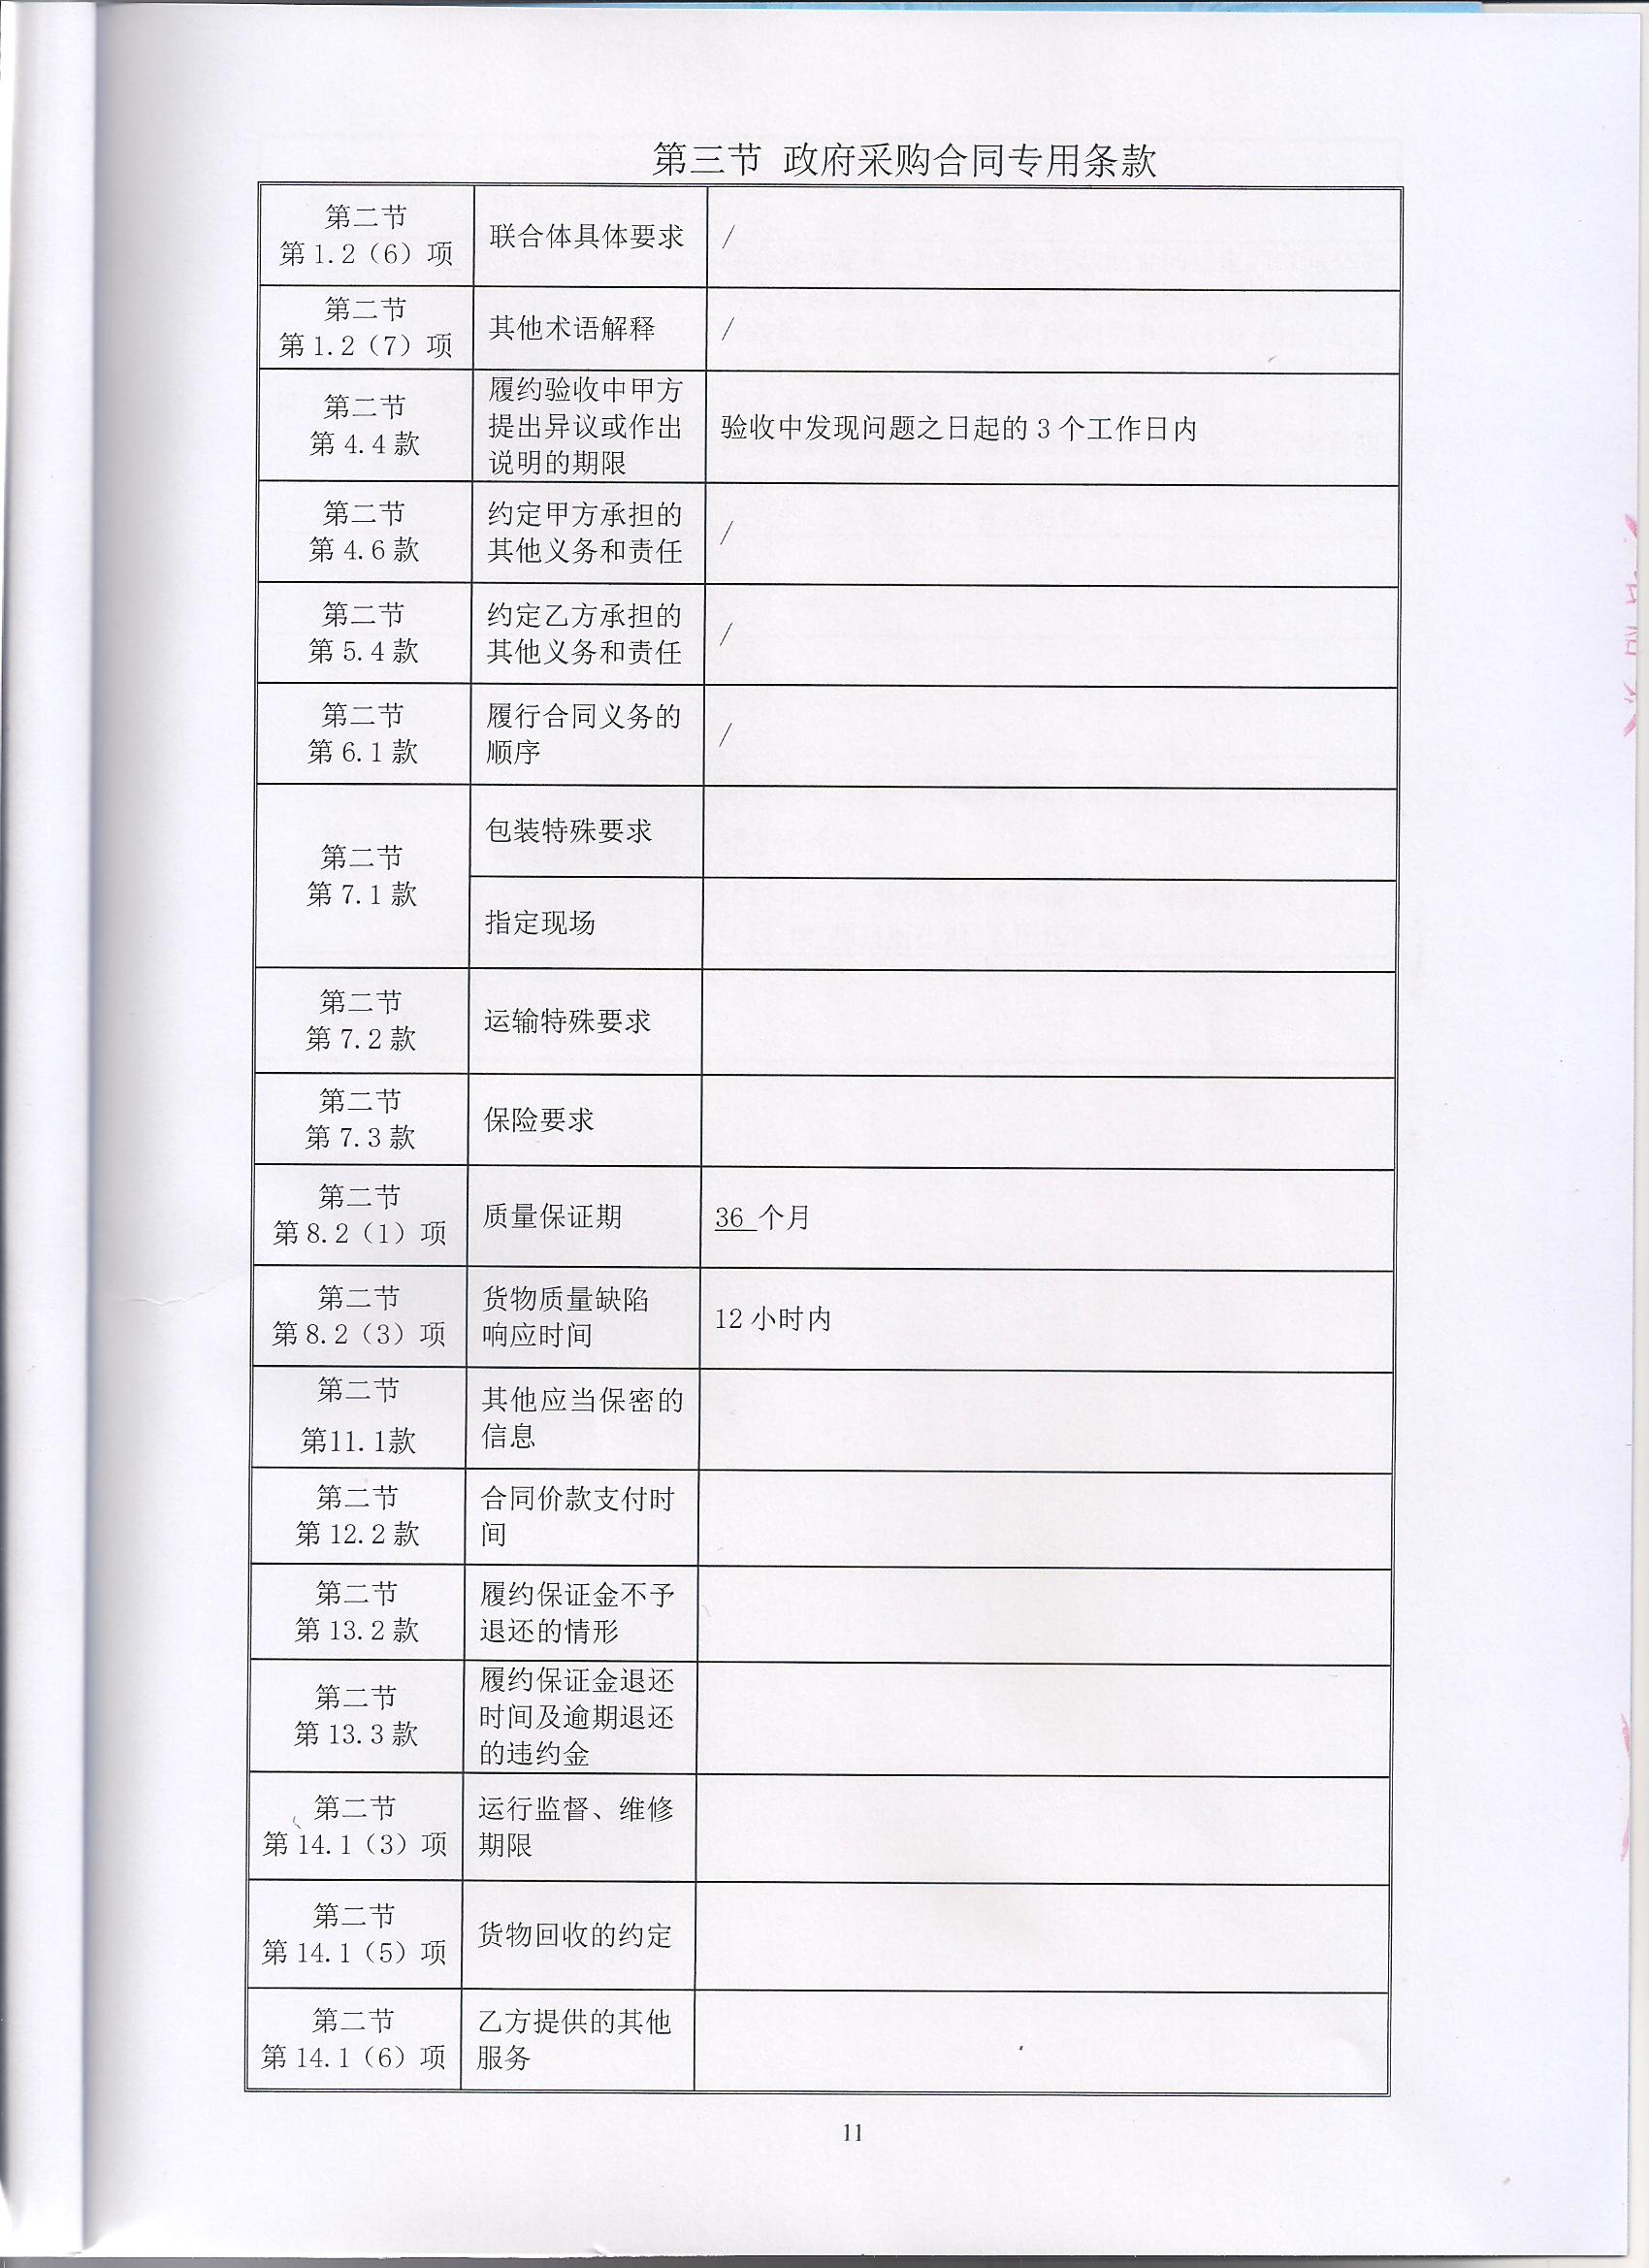 第三节 政府采购合同专用条款
第二节
第1.2（6）项
联合体具体要求
/
第二节
第1.2（7）项
其他术语解释
/
第二节
第 4.4 款
履约验收中甲方
提出异议或作出
说明的期限
验收中发现问题之日起的 3 个工作日内
第二节
第 4.6 款
约定甲方承担的
其他义务和责任
/
第二节
第 5.4 款
约定乙方承担的
其他义务和责任
/
第二节
第 6.1 款
履行合同义务的
顺序
/
第二节
第 7.1 款
包装特殊要求
指定现场
第二节
第 7.2 款
运输特殊要求
第二节
第 7.3 款
保险要求
第二节
第8.2（1）项
质量保证期
36 个月
第二节
第8.2（3）项
货物质量缺陷
响应时间
12 小时内
第二节
第11.1款
其他应当保密的
信息
第二节
第 12.2 款
合同价款支付时
间
第二节
第 13.2 款
履约保证金不予
退还的情形
第二节
第 13.3 款
履约保证金退还
时间及逾期退还
的违约金
第二节
第14.1（3）项
运行监督、维修
期限
第二节
第14.1（5）项
货物回收的约定
第二节
第14.1（6）项
乙方提供的其他
服务
11